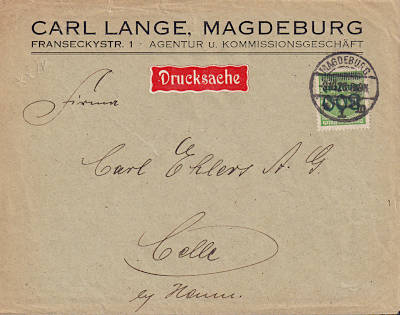 CARL LANGE, MAGDEBURG
FRANSECKYSTR. 1 · AGENTUR U. KOMMISSIONSGESCHÄFT
Drucksache
MAGDEBURG
Firma
Carl Ehlers A. G
Celle